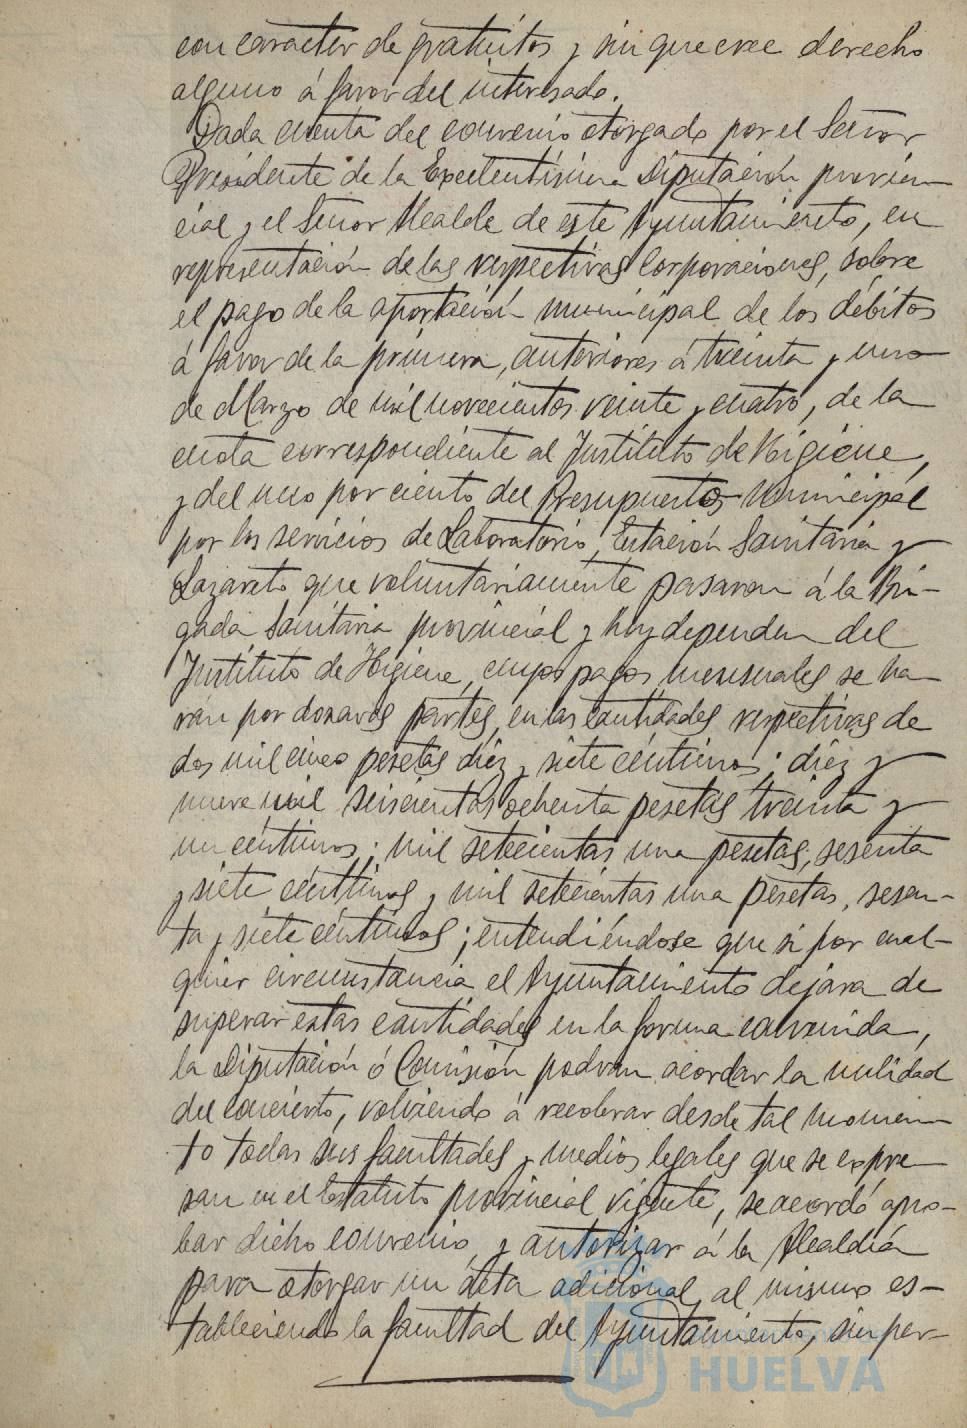 con caracter de gratuitos y sin que cree derecho
alguno á favor del interesado.
Dada cuenta del convenio otorgado por el Señor
Presidente de la Excelentísima Diputación provin-
cial y el Señor Alcalde de este Ayuntamiento, en
representación de las respectivas Corporaciones, sobre
el pago de la aportación municipal de los débitos
á favor de la primera, anteriores á treinta y uno
de Marzo de mil novecientos veinte y cuatro, de la
cuota correspondiente al Instituto de Higiene,
y del uno por ciento del Presupuesto Municipal
por los servicios de Laboratorio, Estación Sanitaria y
Lazareto que voluntariamente pasaron á la Bri-
gada Sanitaria provincial y hoy dependen del
Instituto de Higiene, cuyos pagos mensuales se ha-
ran por dozavas partes, en las cantidades respectivas de
dos mil cinco pesetas diez y siete céntimos; diez y
nueve mil seiscientas ochenta pesetas treinta y
un céntimos; mil setecientas una pesetas, sesenta
y siete céntimos y mil setecientas una pesetas, sesen-
ta y siete céntimos; entendiéndose que si por cual-
quier circunstancia el Ayuntamiento dejara de
superar estas cantidades en la forma convenida,
la Diputación ó Comisión podran acordar la nulidad
del concierto, volviendo á recobrar desde tal momen-
to todas sus facultades y medios legales que se expre-
san en el Estatuto provincial vigente, se acordó apro-
bar dicho convenio y autorizar á la Alcaldía
para otorgar un acta adicional al mismo es-
tableciendo la facultad del Ayuntamiento, sin per-
HUELVA